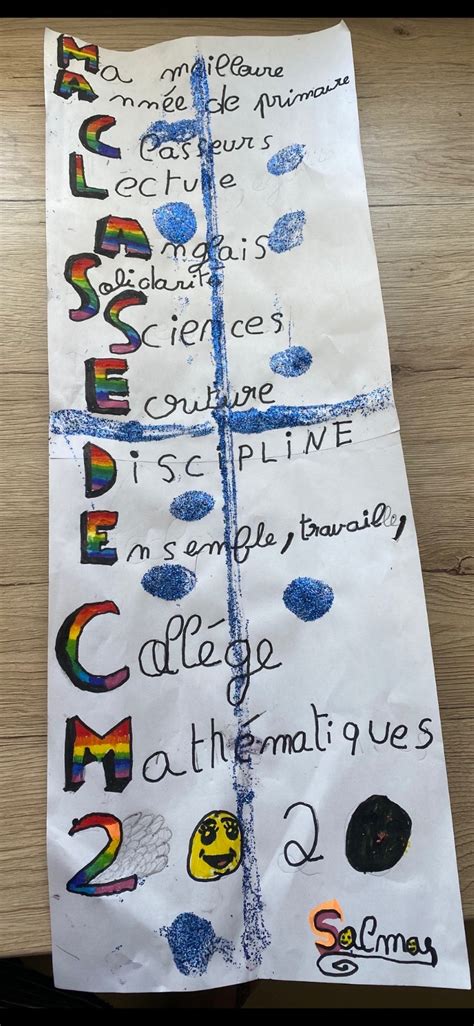 Ma meilloure
Année de primaure
Classeurs
Lecture
Anglais
Solidarité
Sciences
Ecouture
DiSCiPLiNE
Ensemfle, travaille,
Collége
Mathématiques
2020
Salma